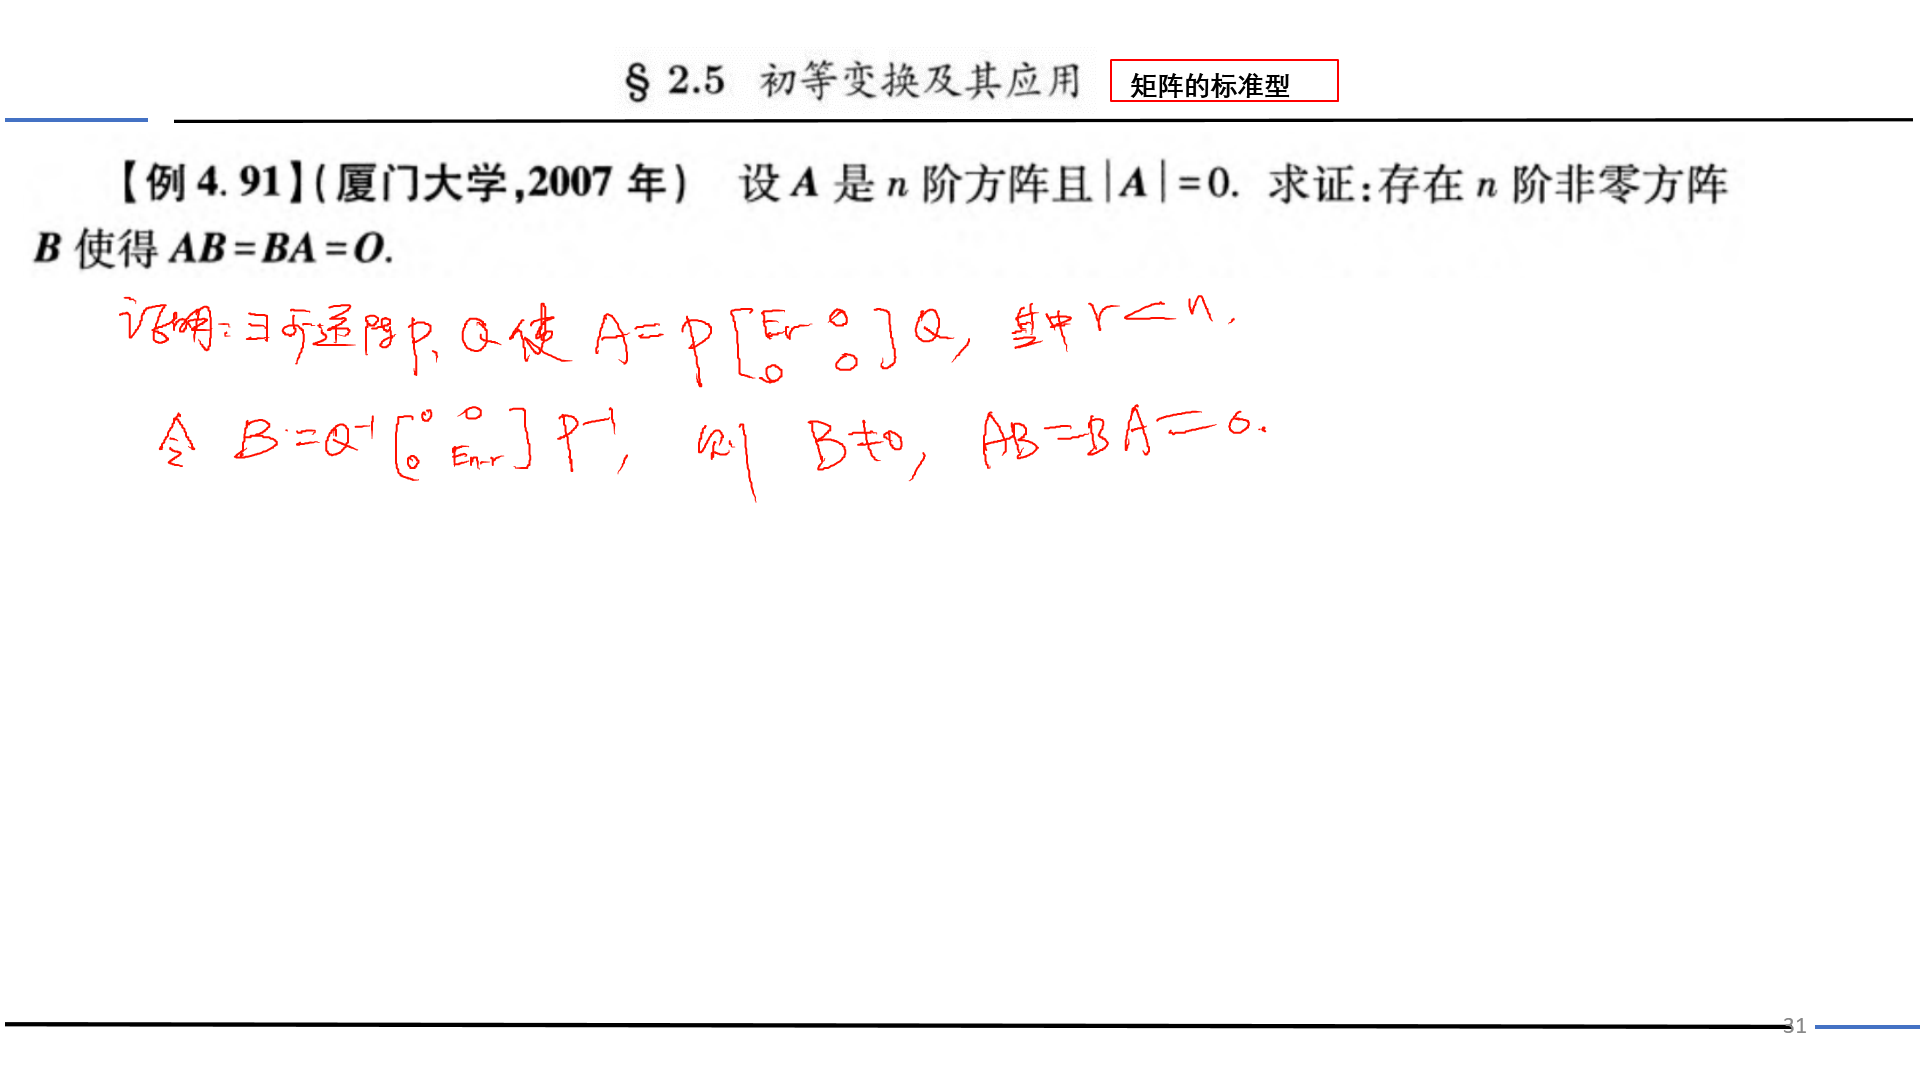 § 2.5 初等变换及其应用 矩阵的标准型
【例 4.91】(厦门大学,2007 年) 设 A 是 n 阶方阵且|A|=0. 求证:存在 n 阶非零方阵
B 使得 AB=BA=O.
证明: ∃可逆阵P, Q 使 A = P [Er 0; 0 0] Q, 其中 r<n.
令 B = Q⁻¹ [0 0; 0 En-r] P⁻¹, 则 B≠0, AB=BA=0.
31